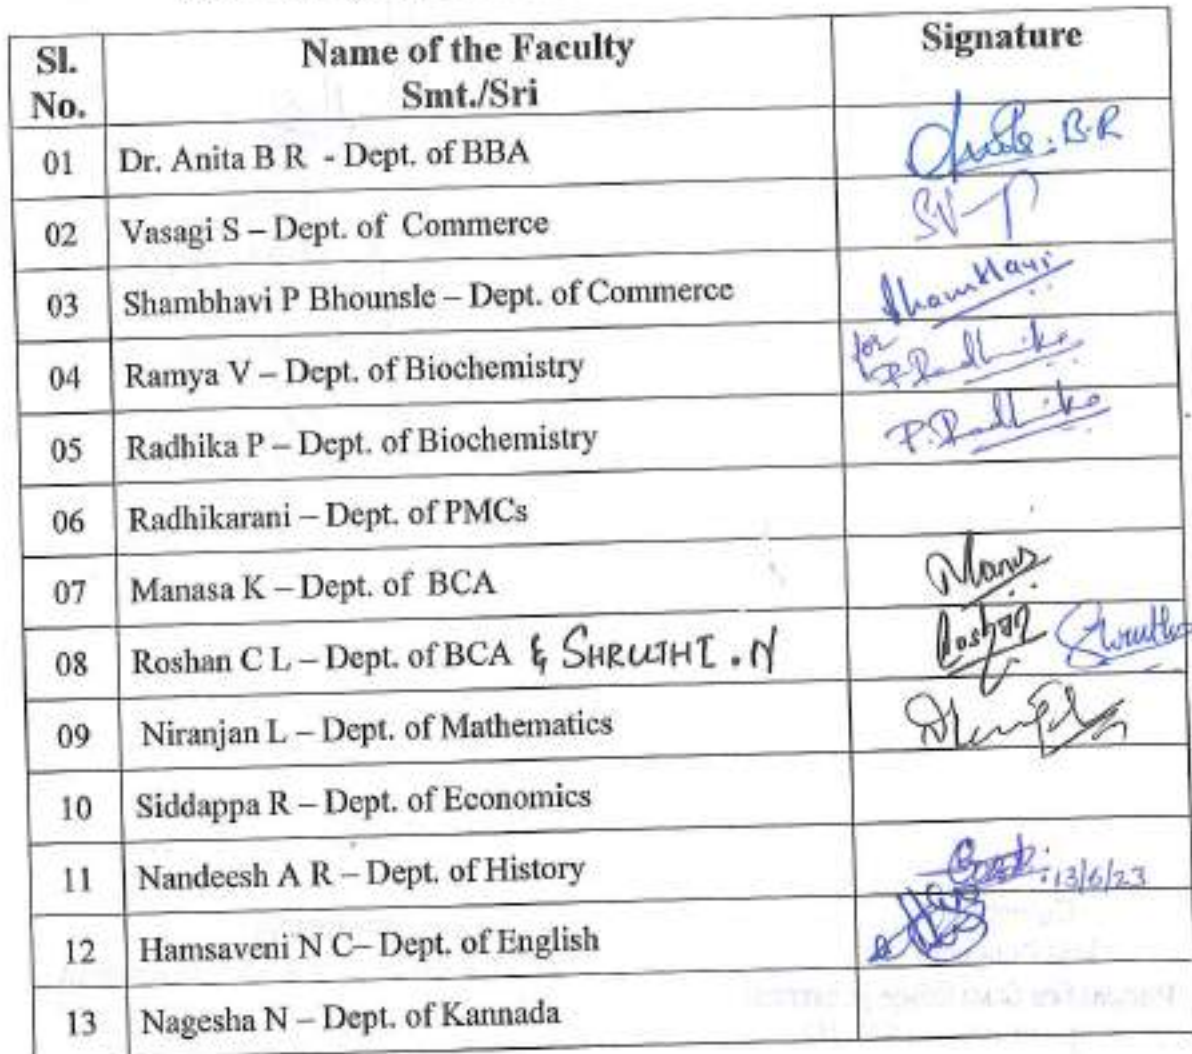 Sl. No. Name of the Faculty Smt./Sri Signature
01 Dr. Anita B R - Dept. of BBA B.R
02 Vasagi S – Dept. of Commerce
03 Shambhavi P Bhounsle – Dept. of Commerce Shambhavi
04 Ramya V – Dept. of Biochemistry for P. Radhika
05 Radhika P – Dept. of Biochemistry P. Radhika
06 Radhikarani – Dept. of PMCs
07 Manasa K – Dept. of BCA
08 Roshan C L – Dept. of BCA & SHRUTHI . N Roshan Shrutha
09 Niranjan L – Dept. of Mathematics
10 Siddappa R – Dept. of Economics
11 Nandeesh A R – Dept. of History 13/6/23
12 Hamsaveni N C– Dept. of English
13 Nagesha N – Dept. of Kannada